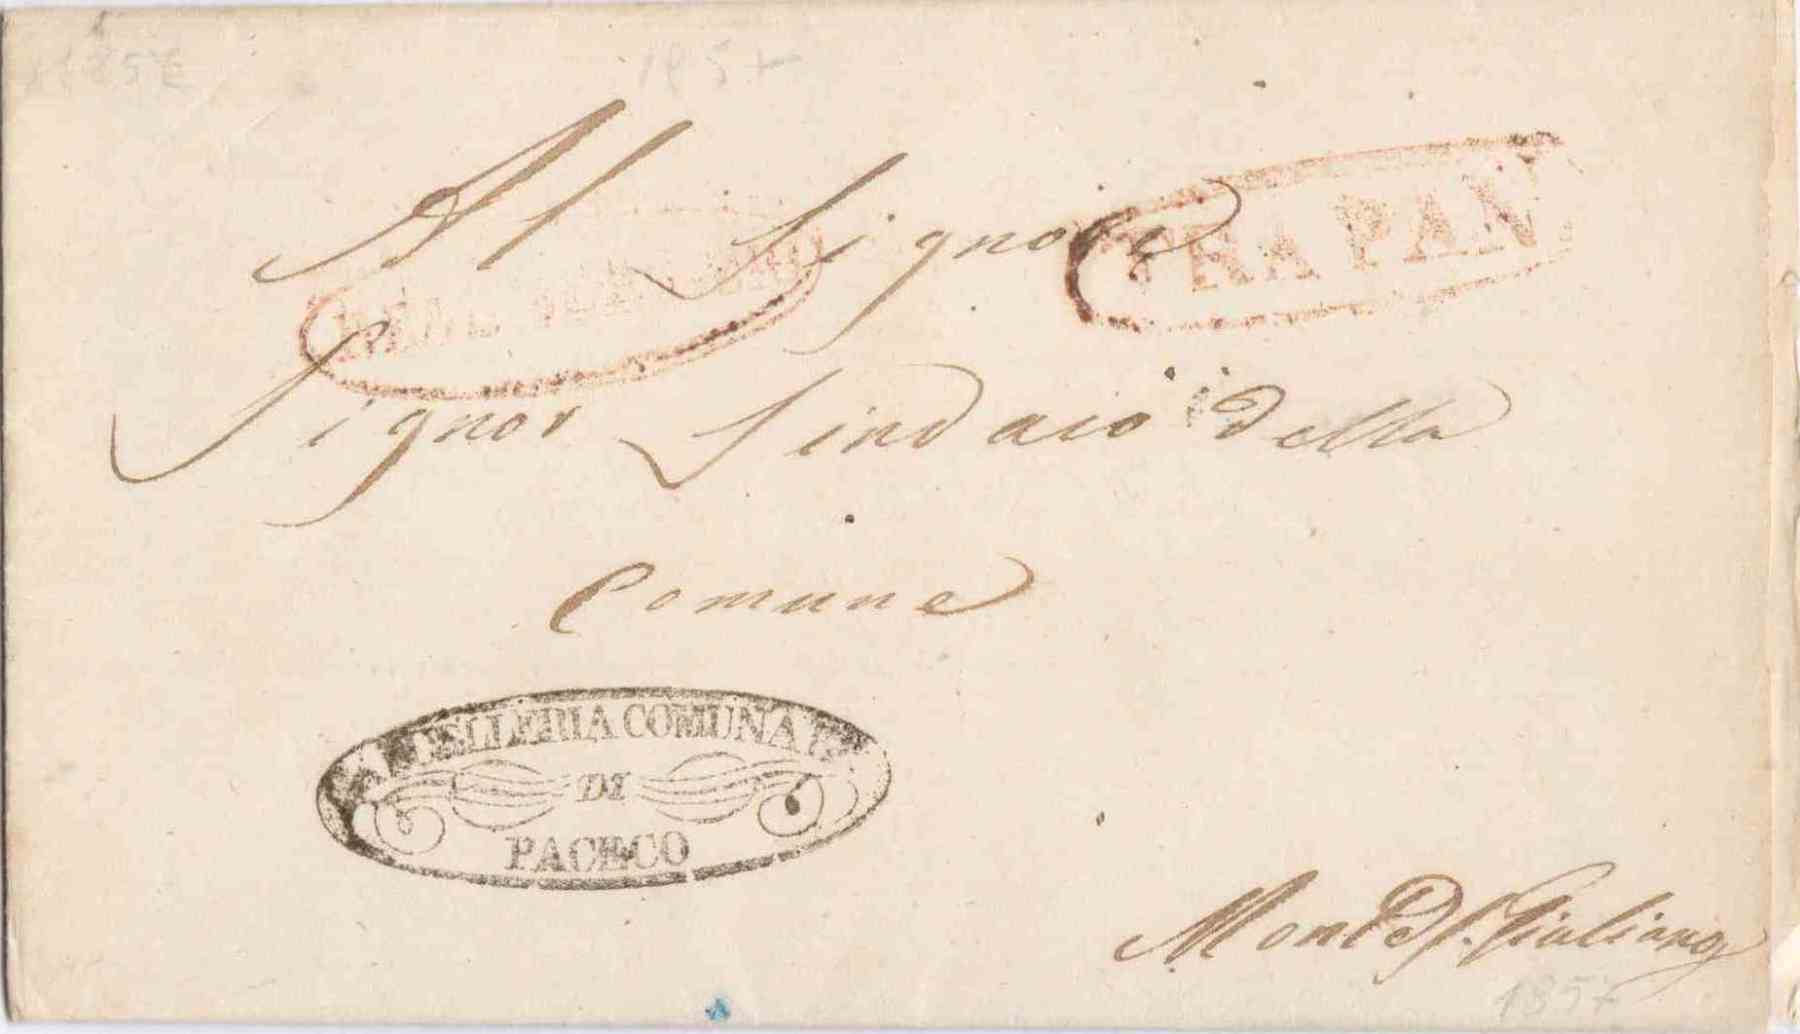 1857
Al Signore
REAL SERVIZIO
TRAPAN
Signor Sindaco della
Comune
CANCELLERIA COMUNALE
DI
PACECO
Monte S. Giuliano
1857